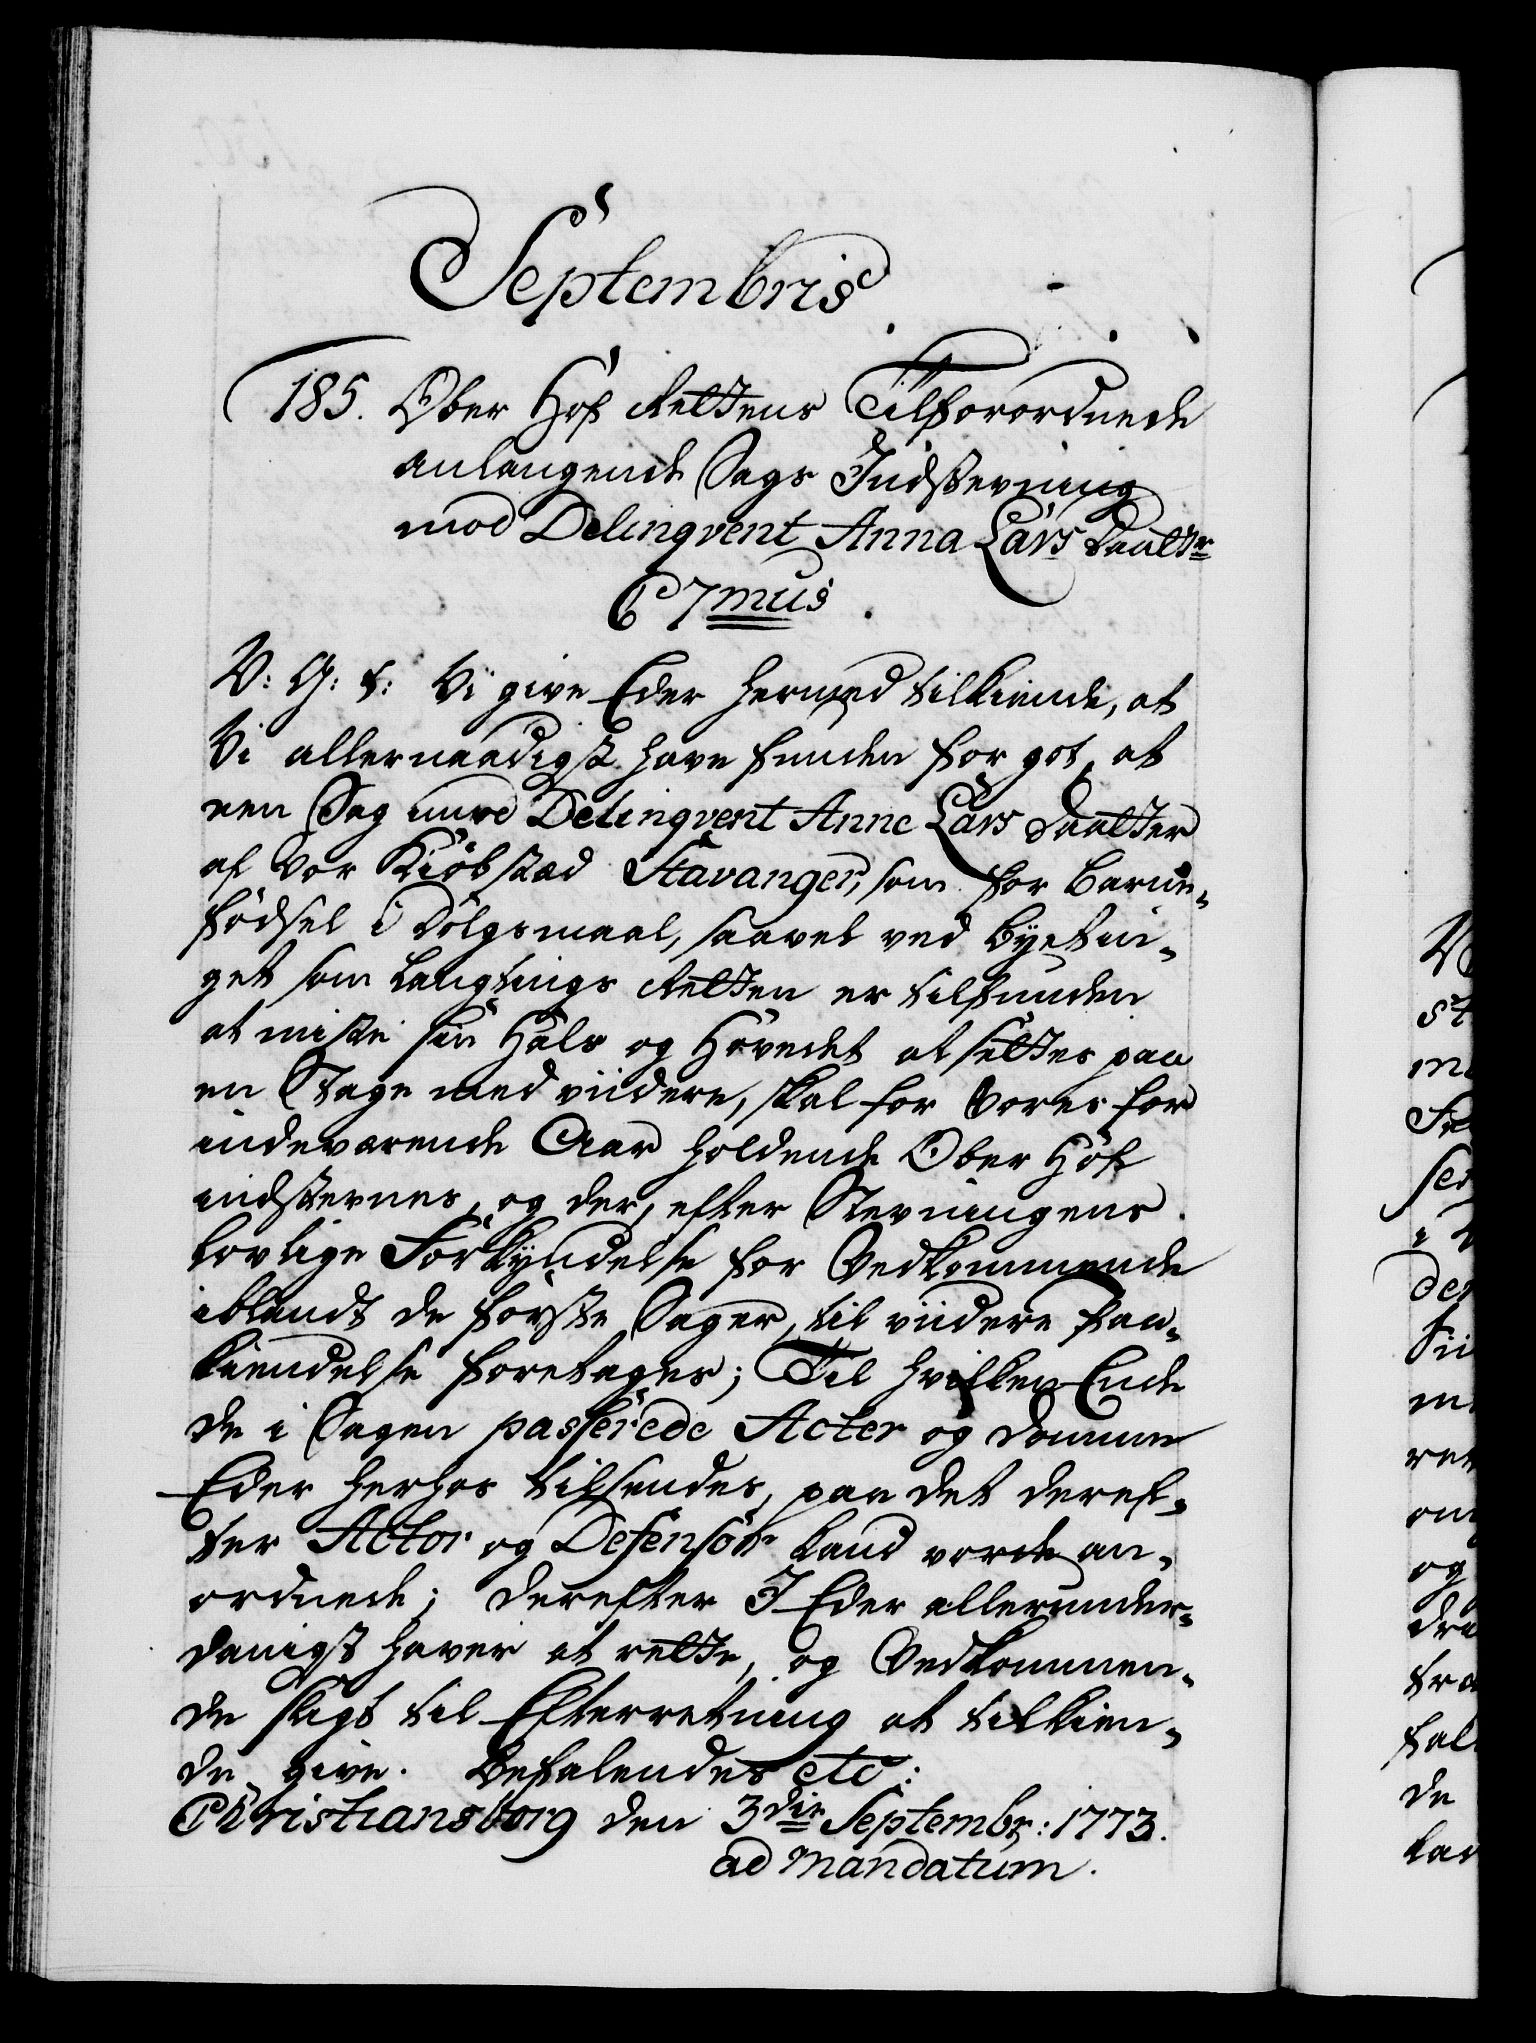 Septembris
185. Ober Hof Rettens Tilforordnede
anlangende Sags Indstevning
mod Delinqvent Anna Lars Daattr
C 7mus
V: G: t: Vi give Eder hermed tilkiende, at
Vi allernaadigst have funden for got, at
een Sag imod Delinqvent Anne Lars Daatter
af Vor Kiöbstad Stavanger, som for Barne-
födsel i Dölgsmaal, saavel ved Byetin-
get som Laugtings Retten er tilfunden
at miste sin Hals og Hovedet at settes paa
en Stage med viidere, skal for Vores for
indeværende Aar holdende Ober Hof
indstevnes, og der, efter Stevningens
lovlige Forkyndelse for Vedkommende
iblandt de förste Sager, til viidere Paa-
kiendelse foretages; Til hvilken Ende
de i Sagen passerede Acter og Domme
Eder herhos tilsendes, paa det deref-
ter Actor og Defensor kand vorde an-
ordnede; Derefter I Eder allerunder-
danigst haver at rette, og Vedkommen-
de sligt til Efterretning at tilkien-
de give. Befalendes etc:
Christiansborg den 3die Septembr: 1773.
ad Mandatum.